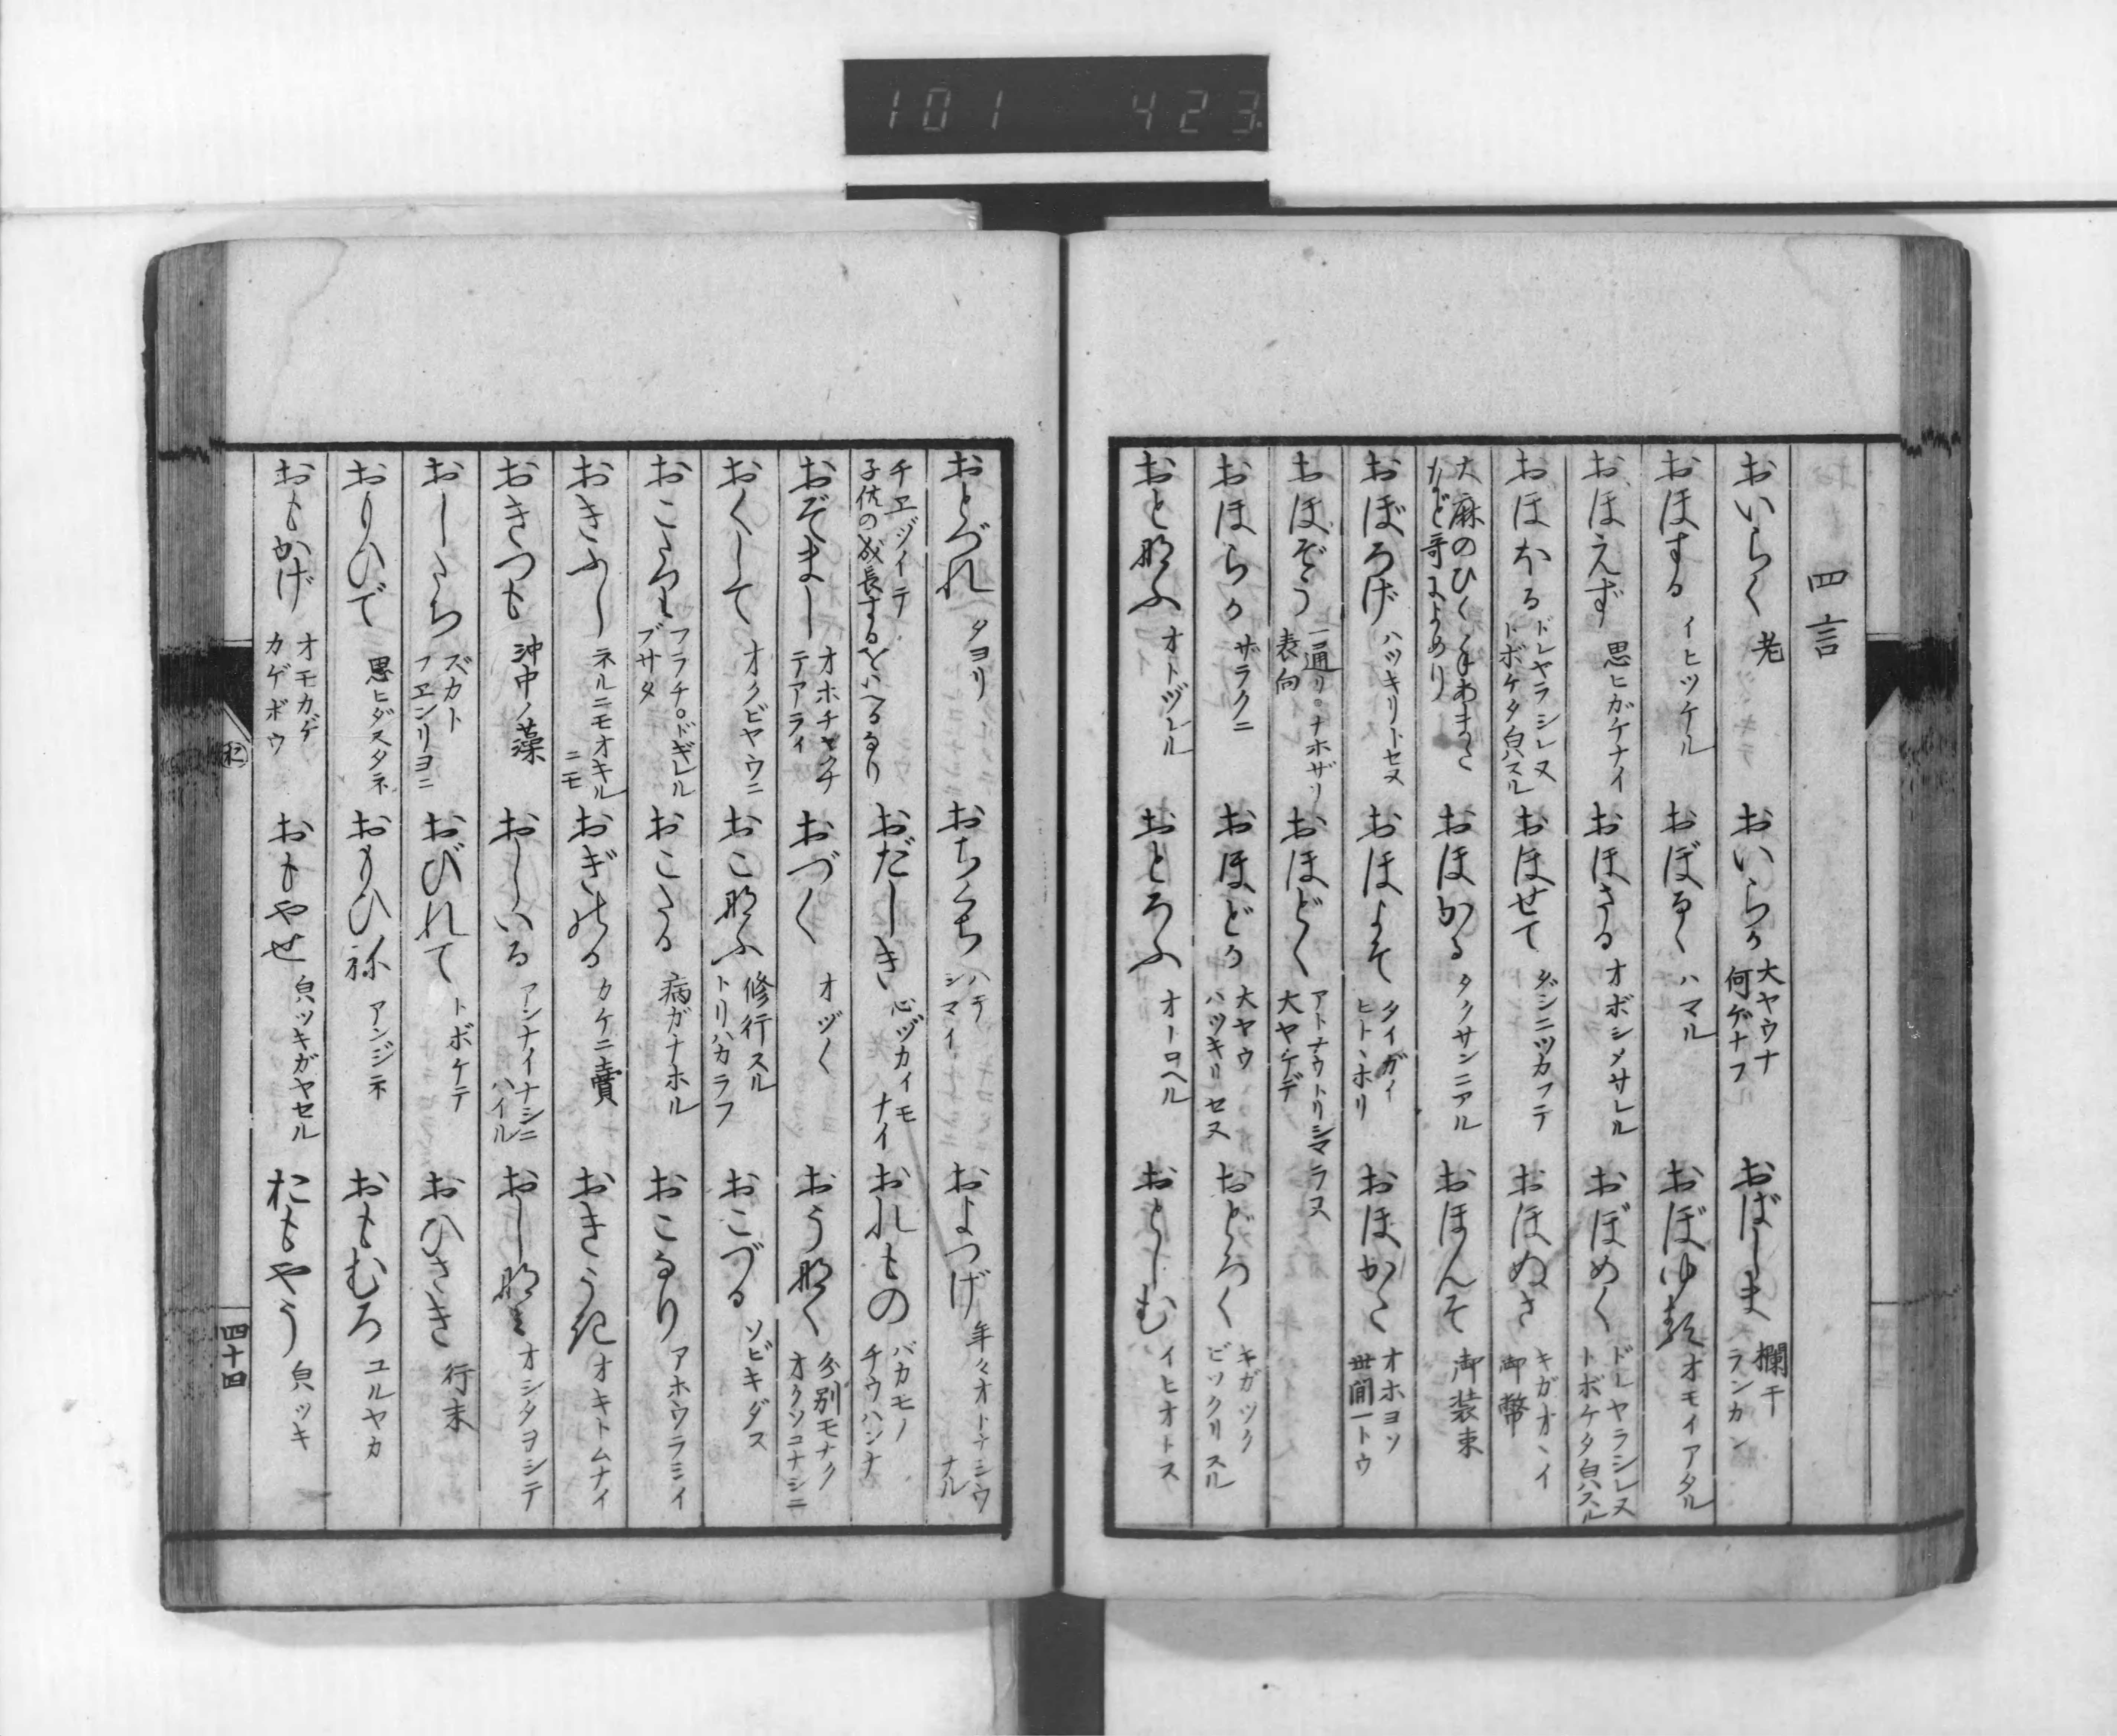 101 423
四言
おいらく 老 おいらか 大ヤウナ 何ゲナフ おばしま 欄干 ランカン
おほする イヒツケル おぼるく ハマル おぼゆる オモイアタル
おほえず 思ヒガケナイ おほさる オボシメサレル おぼめく ドレヤラシレヌ トボケタ㒵スル
おほおる ドレヤラシレヌ トボケタ㒵スル おほせて ダシニツカフテ おほぬさ キガオヽイ 御幣
大麻のひく手あまた など哥によめり おほかる タクサンニアル おほんそ 御装束
おぼろげ ハツキリトセヌ おほよそ タイガイ ヒトヽホリ おほかた オホヨソ 世間一トウ
おほぞう 一通リ。ナホザリ 表向 おほどく アトナウトリシマラヌ 大ヤケデ
おほらか ザラクニ おほどか 大ヤウ ハツキリセヌ おどろく キガツク ビツクリスル
おと那ふ オトヅレル おとろふ オーロヘル おとしむ イヒオトス
おとづれ タヨリ おちくち ハテ シマイ およつげ 年々オトナシウナル
チヱヅイテ 子供の成長するをいへるなり おだしき 心ヅカイモナイ おれもの バカモノ チウハンナ
おぞまし オホチヤクチ テアライ おづく オヅく おう那く 分別モナク オクソコナシニ
おくして オクビヤウニ おこ那ふ 修行スル トリハカラフ おこづる ソビキダス
おこたり フラチ。ドギレル ブサタ おこたる 病ガナホル おこなり アホウラシイ
おきふし ネルニモオキルニモ おぎのる カケニ賣 おきうき オキトムナイ
おきつも 沖中ノ藻 おしいる アンナイナシニハイル おし那み オシタヲシテ
おしたち ズカト フヱンリヨニ おびれて トボケテ おひさき 行末
おもひで 思ヒダスタネ おもひ祢 アンジネ おもむろ ユルヤカ
おもかげ オモカゲ カゲボウ おもやせ 㒵ツキガヤセル おもやう 㒵ツキ
四十四